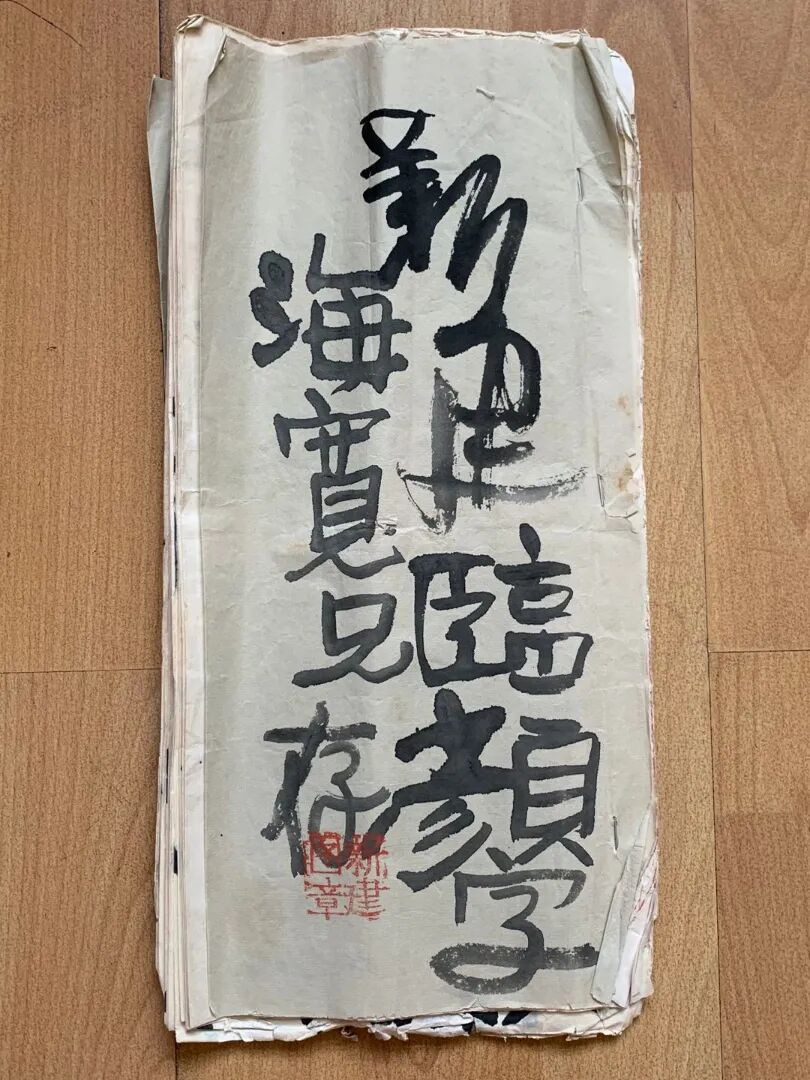 新建臨顏字
海寬兄存
新建
之章